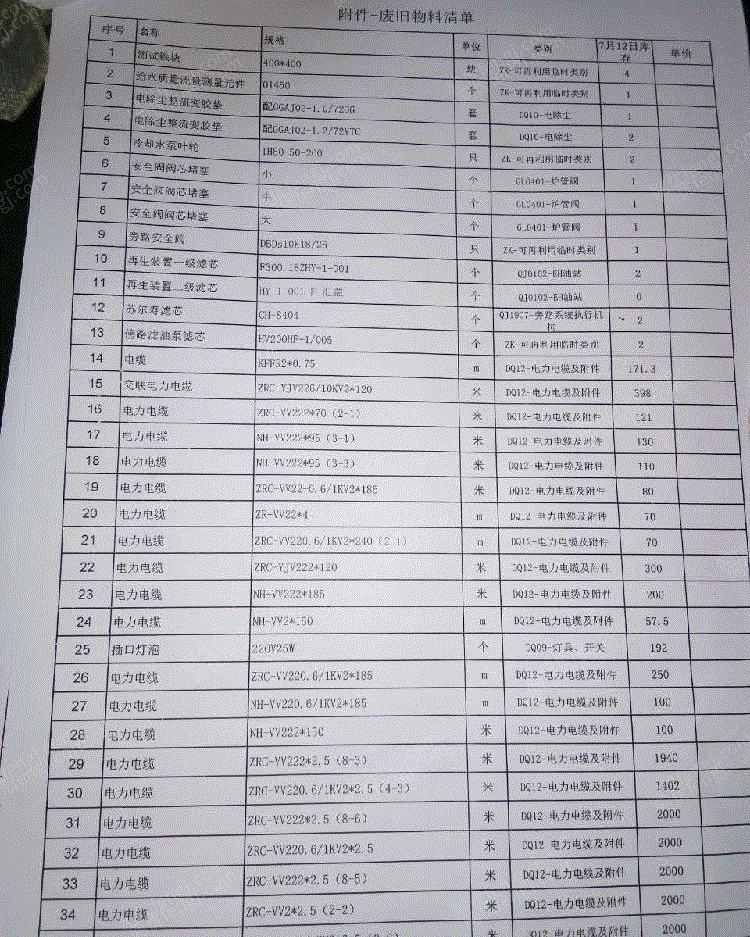 附件-废旧物料清单
序号 名称 规格 单位 类别 7月12日库存 单价
1 测试铁块 400*400 块 ZK-可再利用临时类别 4
2 给水质量流量测量元件 01450 个 ZK-可再利用临时类别 1
3 电除尘整流变胶垫 套 DQ10-电除尘 1
4 电除尘整流变胶垫 套 DQ10-电除尘 2
5 冷却水泵叶轮 IH80-50-200 只 ZK-可再利用临时类别 2
6 安全阀阀芯堵塞 小 个 GL0401-炉管阀 1
7 安全阀阀芯堵塞 中 个 GL0401-炉管阀 1
8 安全阀阀芯堵塞 大 个 GL0401-炉管阀 1
9 旁路安全阀 只 ZK-可再利用临时类别 1
10 再生装置一级滤芯 个 QJ0102-EH油站 2
11 再生装置二级滤芯 个 QJ0102-EH油站 6
12 苏尔寿滤芯 CH-8404 个 旁路系统执行机构 2
13 滤油泵滤芯 个 ZK-可再利用临时类别 2
14 电缆 m DQ12-电力电缆及附件 171.3
15 交联电力电缆 ZRC-YJV226/10KV2*120 米 DQ12-电力电缆及附件 398
16 电力电缆 ZRC-VV222*70 (2-1) 米 DQ12-电力电缆及附件 121
17 电力电缆 NH-VV222*95 (3-1) 米 DQ12-电力电缆及附件 130
18 电力电缆 NH-VV222*95 (3-3) 米 DQ12-电力电缆及附件 110
19 电力电缆 ZRC-VV22-0.6/1KV2*185 米 DQ12-电力电缆及附件 80
20 电力电缆 ZR-VV22*4 m DQ12-电力电缆及附件 70
21 电力电缆 ZRC-VV220.6/1KV2*240 (2-1) m DQ12-电力电缆及附件 70
22 电力电缆 ZRC-YJV222*120 米 DQ12-电力电缆及附件 300
23 电力电缆 NH-VV222*185 米 DQ12-电力电缆及附件 200
24 电力电缆 NH-VV2*150 m DQ12-电力电缆及附件 57.5
25 插口灯泡 220V25W 个 DQ09-灯具、开关 192
26 电力电缆 ZRC-VV220.6/1KV2*185 m DQ12-电力电缆及附件 250
27 电力电缆 NH-VV220.6/1KV2*185 m DQ12-电力电缆及附件 100
28 电力电缆 NH-VV222*150 米 DQ12-电力电缆及附件 100
29 电力电缆 ZRC-VV222*2.5 (8-3) 米 DQ12-电力电缆及附件 1940
30 电力电缆 ZRC-VV220.6/1KV2*2.5 (4-3) 米 DQ12-电力电缆及附件 1402
31 电力电缆 ZRC-VV222*2.5 (8-6) 米 DQ12-电力电缆及附件 2000
32 电力电缆 ZRC-VV220.6/1KV2*2.5 米 DQ12-电力电缆及附件 2000
33 电力电缆 ZRC-VV222*2.5 (8-5) 米 DQ12-电力电缆及附件 2000
34 电力电缆 ZRC-VV2*2.5 (2-2) 米 DQ12-电力电缆及附件 2000
米 DQ12-电力电缆及附件 2000